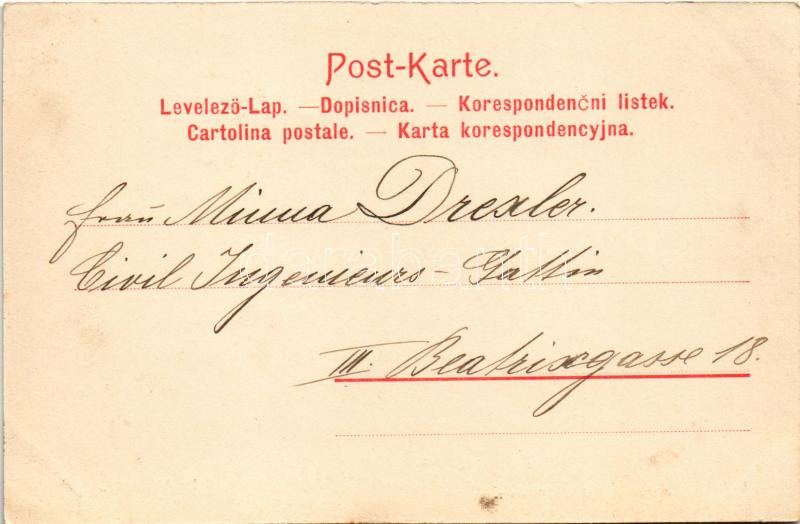 Post-Karte.
Levelező-Lap. —Dopisnica. — Korespondenčni listek.
Cartolina postale. — Karta korespondencyjna.
Frau Minna Drexler.
Civil Ingenieurs - Gattin
darabanth
III. Beatrixgasse 18.